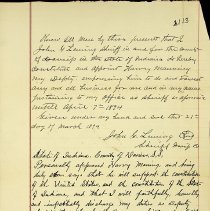 213
Know All Men by these present that I
John G. Leming Sheriff in and for the county
of        in the State of Indiana do hereby
Constitute and appoint Harvey Manning
my Deputy empowering him to do and transact
any and all business for me and in my name
pertaining to my office as Sheriff
until April 7th 1894
Given under my hand and seal this 21st
day of March 1894
John G. Leming
Sheriff
State of Indiana, County of        S.S.
Personally appeared Harvey Manning and being
duly sworn says that he will support the constitution
of the United States and the constitution of the State
of Indiana, and that I will faithfully, honestly
and impartially discharge my duties as deputy